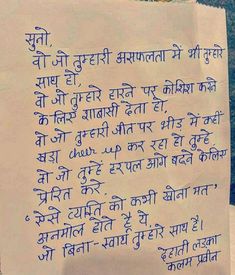 सुनो,
वो जो तुम्हारी असफलता में भी तुम्हारे
साथ हो,
वो जो तुम्हारे हारने पर कोशिश करने
के लिए शाबासी देता हो,
वो जो तुम्हारी जीत पर भीड़ में कहीं
खड़ा cheer up कर रहा हो तुम्हे,
वो जो तुम्हें हरपल आगे बढ़ने के लिए
प्रेरित करे.
“ऐसे व्यक्ति को कभी खोना मत”
अनमोल होते है ये
जो बिना-स्वार्थ तुम्हारे साथ है।
देहाती लड़का
कलम प्रवीन